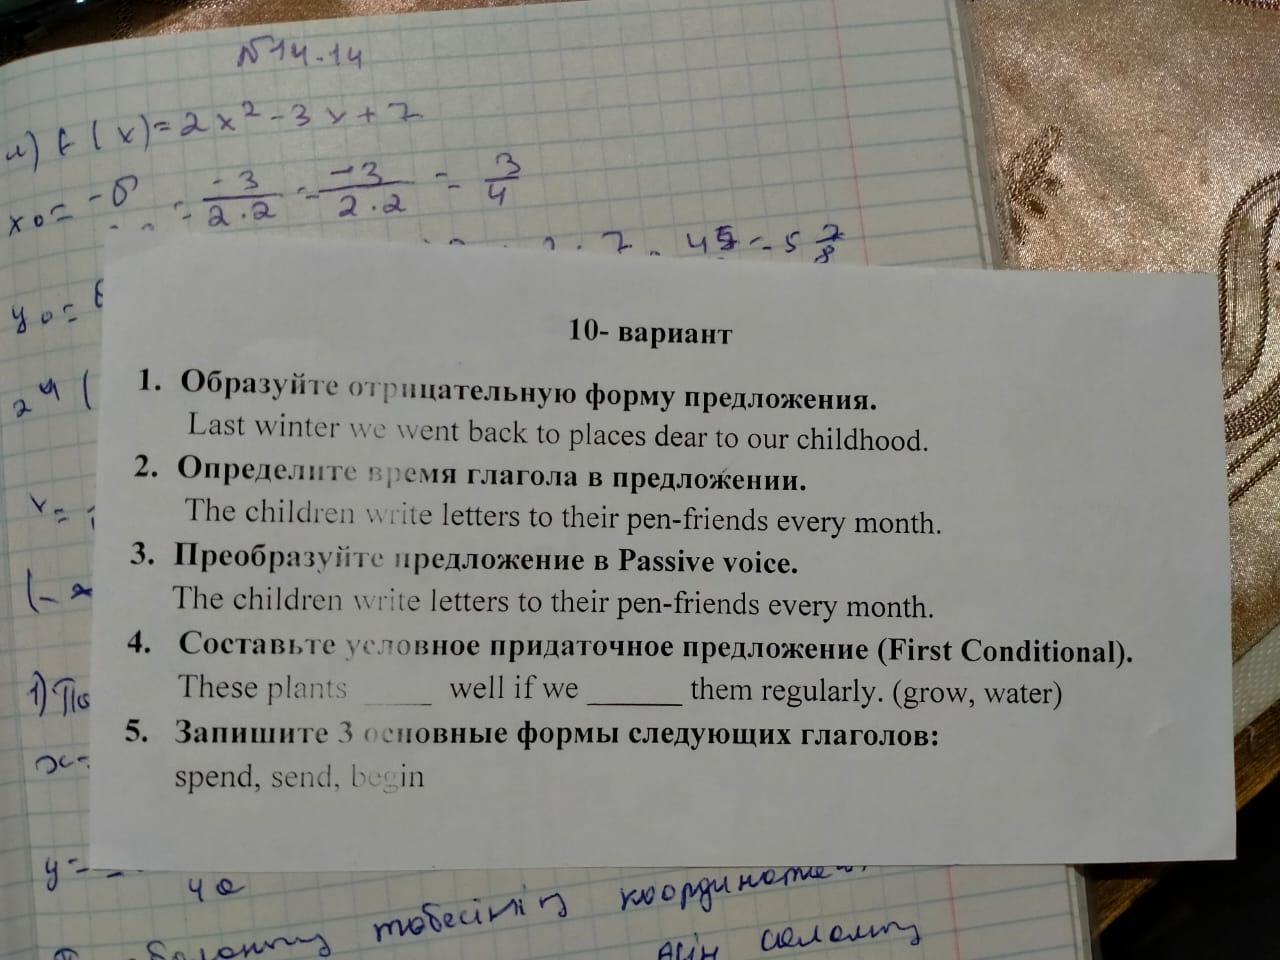 N14-14
f(x)=2x²-3x+7
x₀= -б = -3/2·2 = -3/2·2 = 3/4
7 45 = 5 7/8
y₀=
10- вариант
1. Образуйте отрицательную форму предложения.
Last winter we went back to places dear to our childhood.
2. Определите время глагола в предложении.
The children write letters to their pen-friends every month.
3. Преобразуйте предложение в Passive voice.
The children write letters to their pen-friends every month.
4. Составьте условное придаточное предложение (First Conditional).
These plants ____ well if we ______ them regularly. (grow, water)
5. Запишите 3 основные формы следующих глаголов:
spend, send, begin
y=-
4a
төбесінің координата